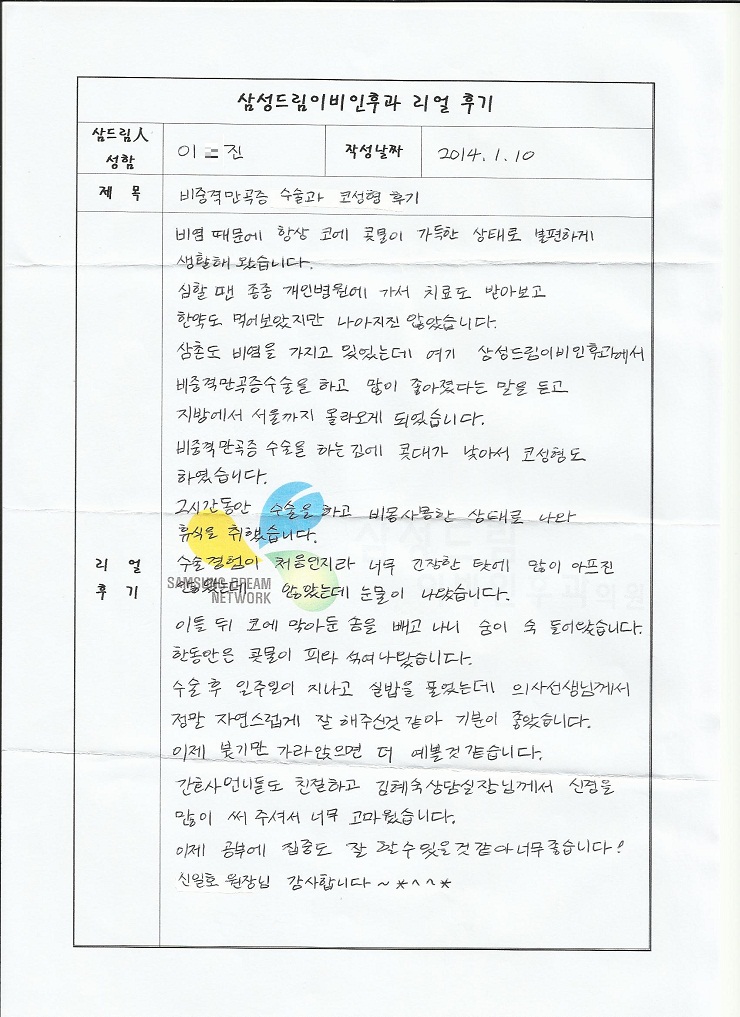 삼성드림이비인후과 리얼 후기
삼드림人
성함
이 진
작성날짜
2014. 1. 10
제 목
비중격만곡증 수술과 코성형 후기
비염 때문에 항상 코에 콧물이 가득한 상태로 불편하게
생활해 왔습니다.
심할 땐 종종 개인병원에 가서 치료도 받아보고
한약도 먹어보았지만 나아지진 않았습니다.
삼촌도 비염을 가지고 있었는데 여기 삼성드림이비인후과에서
비중격만곡증수술을 하고 많이 좋아졌다는 말을 듣고
지방에서 서울까지 올라오게 되었습니다.
비중격만곡증 수술을 하는김에 콧대가 낮아서 코성형도
하였습니다.
2시간동안 수술을 하고 비몽사몽한 상태로 나와
휴식을 취했습니다.
리 얼
후 기
수술경험이 처음인지라 너무 긴장한 탓에 많이 아프진
않았는데 않았는데 눈물이 나왔습니다.
이틀 뒤 코에 막아둔 솜을 빼고 나니 숨이 쑥 들어왔습니다.
한동안은 콧물이 피랑 섞여나왔습니다.
수술 후 일주일이 지나고 실밥을 풀었는데 의사선생님께서
정말 자연스럽게 잘 해주신것 같아 기분이 좋았습니다.
이제 붓기만 가라앉으면 더 예쁠것 같습니다.
간호사언니들도 친절하고 김혜숙상담실장님께서 신경을
많이 써 주셔서 너무 고마웠습니다.
이제 공부에 집중도 잘 할 수 있을것 같아 너무 좋습니다!
신일호 원장님 감사합니다 ~ *^^*
SAMSUNG DREAM
NETWORK
삼성드림
이비인후과의원